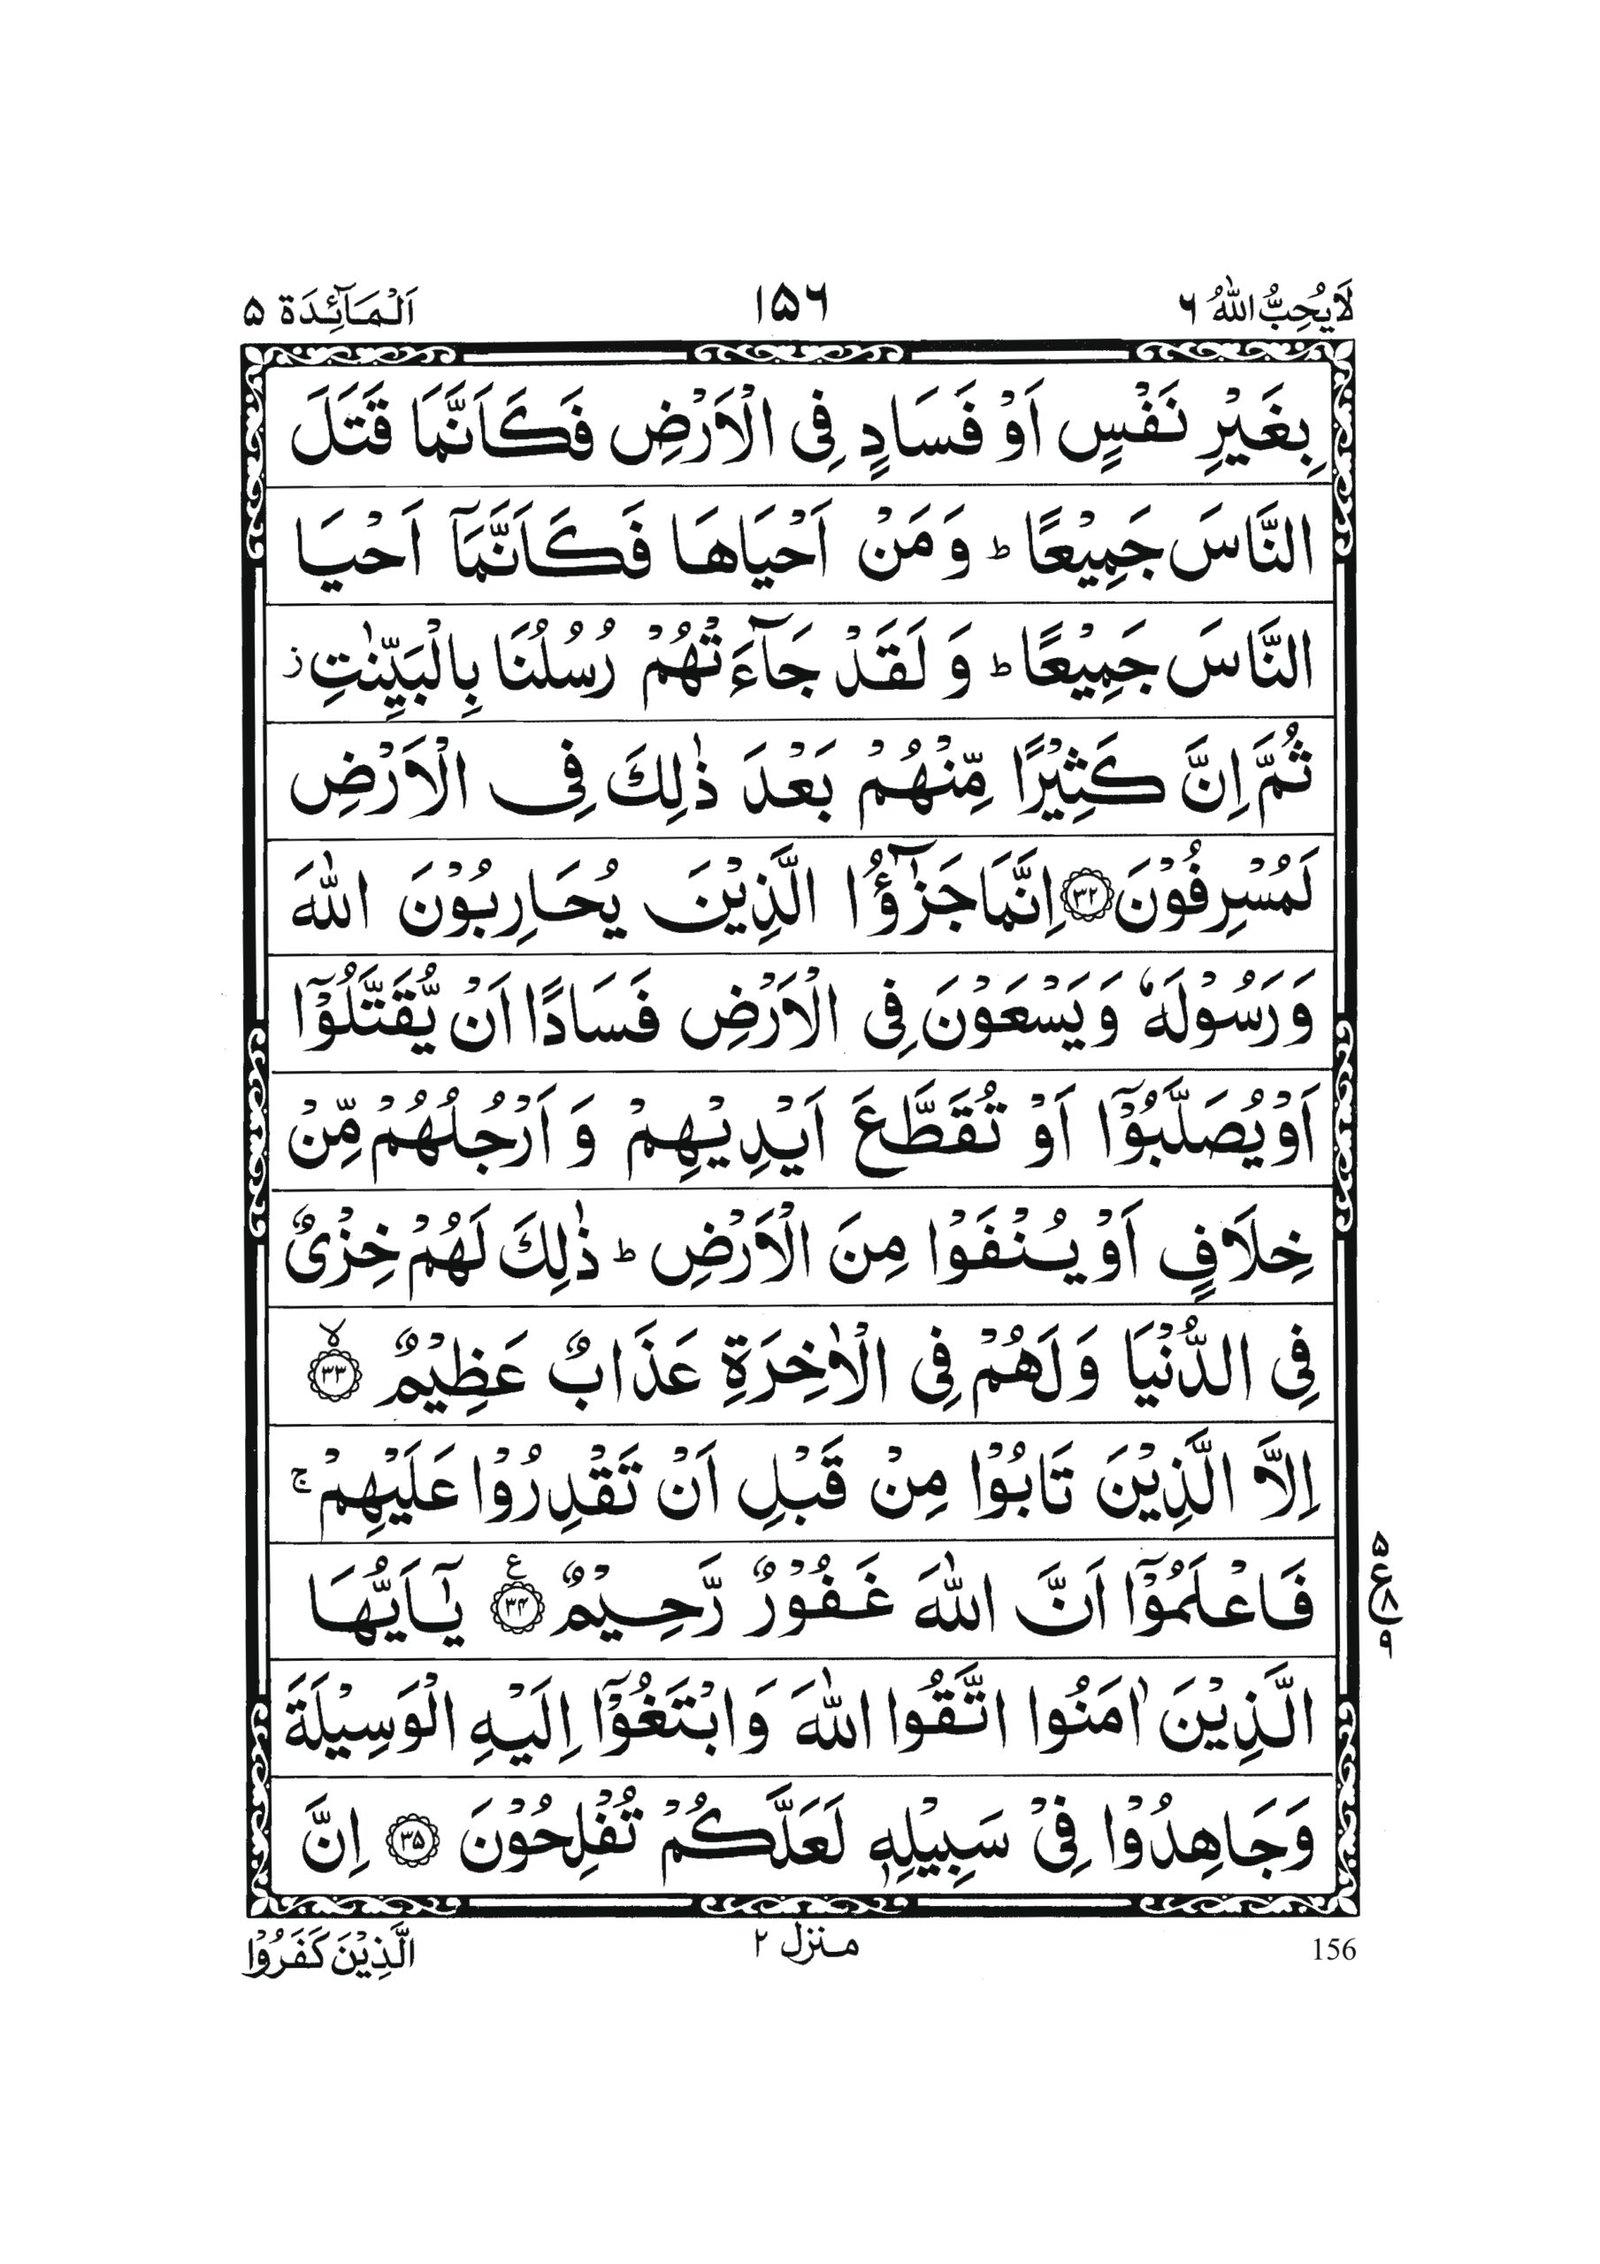 لَا یُحِبُّ اللّٰهُ ٦ ١۵٦ اَلْمَآئِدَة ۵
بِغَیْرِ نَفْسٍ اَوْ فَسَادٍ فِی الْاَرْضِ فَكَاَنَّمَا قَتَلَ
النَّاسَ جَمِیْعًا ؕ وَ مَنْ اَحْیَاهَا فَكَاَنَّمَاۤ اَحْیَا
النَّاسَ جَمِیْعًا ؕ وَ لَقَدْ جَآءَتْهُمْ رُسُلُنَا بِالْبَیِّنٰتِ ز
ثُمَّ اِنَّ كَثِیْرًا مِّنْهُمْ بَعْدَ ذٰلِكَ فِی الْاَرْضِ
لَمُسْرِفُوْنَ ۳۲ اِنَّمَا جَزٰٓؤُا الَّذِیْنَ یُحَارِبُوْنَ اللّٰهَ
وَ رَسُوْلَهٗ وَ یَسْعَوْنَ فِی الْاَرْضِ فَسَادًا اَنْ یُّقَتَّلُوْۤا
اَوْ یُصَلَّبُوْۤا اَوْ تُقَطَّعَ اَیْدِیْهِمْ وَ اَرْجُلُهُمْ مِّنْ
خِلَافٍ اَوْ یُنْفَوْا مِنَ الْاَرْضِ ؕ ذٰلِكَ لَهُمْ خِزْیٌ
فِی الدُّنْیَا وَ لَهُمْ فِی الْاٰخِرَةِ عَذَابٌ عَظِیْمٌ لا ۳۳
اِلَّا الَّذِیْنَ تَابُوْا مِنْ قَبْلِ اَنْ تَقْدِرُوْا عَلَیْهِمْ ج
فَاعْلَمُوْۤا اَنَّ اللّٰهَ غَفُوْرٌ رَّحِیْمٌ ع ۳۴ یٰۤاَیُّهَا
۵ ع ۸ ۹
الَّذِیْنَ اٰمَنُوا اتَّقُوا اللّٰهَ وَ ابْتَغُوْۤا اِلَیْهِ الْوَسِیْلَةَ
وَ جَاهِدُوْا فِیْ سَبِیْلِهٖ لَعَلَّكُمْ تُفْلِحُوْنَ ۳۵ اِنَّ
156 منزل ۲ الَّذِیْنَ كَفَرُوْا